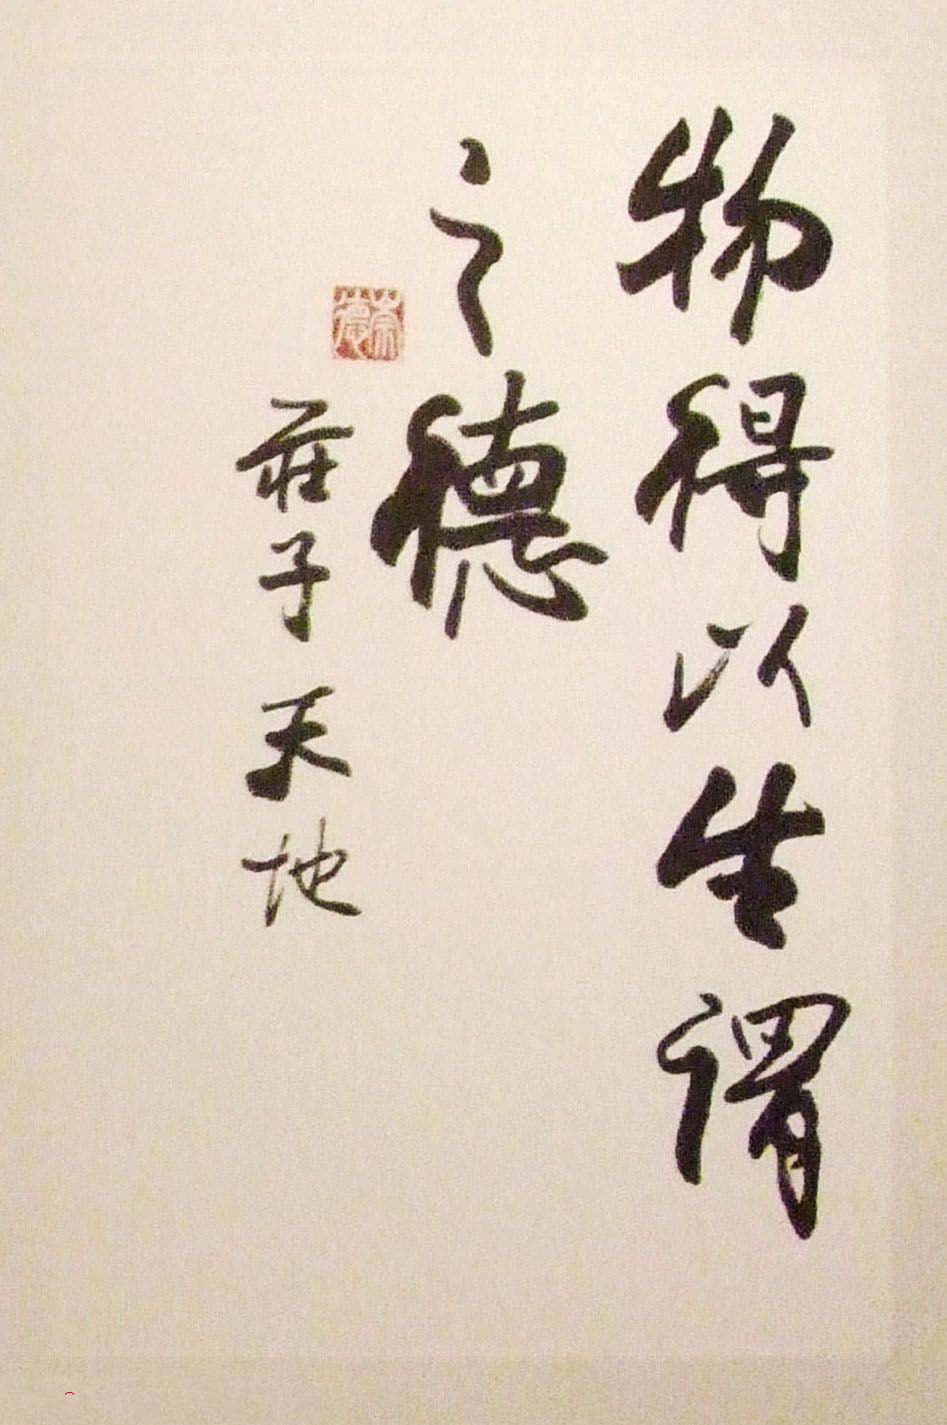 物得以生謂
之德
莊子 天地
崇德